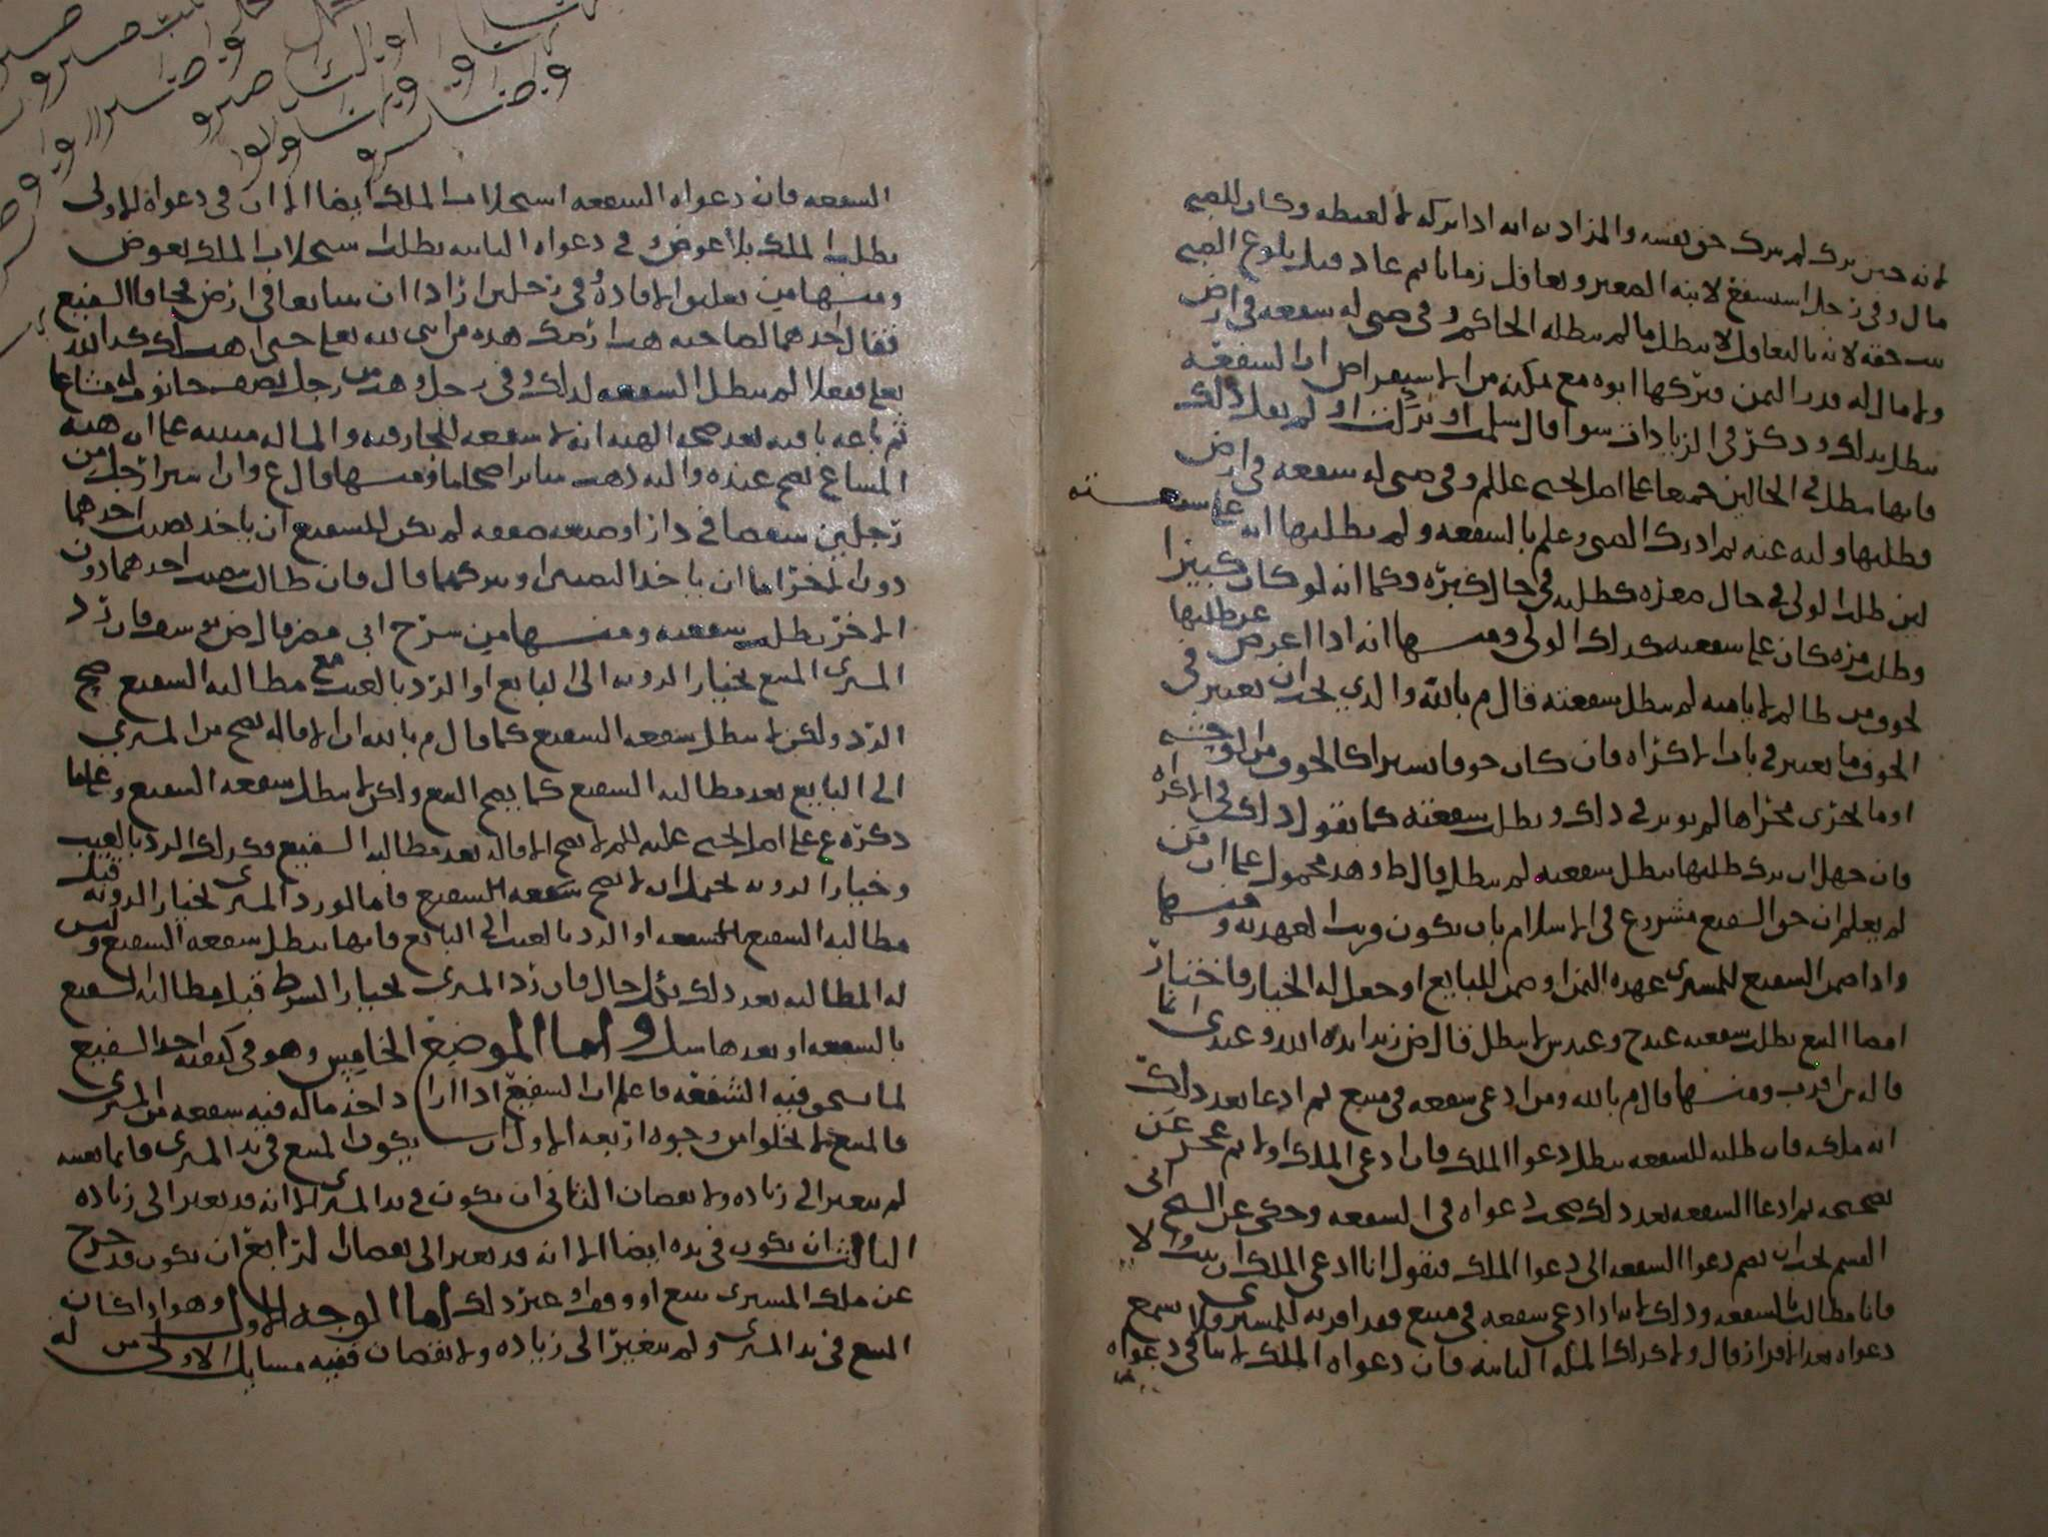 لانه حين ترك لم يترك حق نفسه والمراد به انه اذا تركه لا لغبطه وكان للصبي
مال وفي رجل استشفع لابنه الصغير وتغافل زمانا ثم عاد قبل بلوغ الصبي
حقه لانه بالتغافل لا يبطل ما لم يبطله الحاكم وفي صبي له شفعه في ارض
ولا مال له قدر الثمن فتركها ابوه مع تمكنه من الاستقراض ان الشفعه
تبطل بذلك وذكر في الزيادات سوا قال سلمت او تركت او لم يقل ذلك
فانها تبطل في الحالين جميعا على اصل الحي علم وفي صبي له شفعه في ارض
فطلبها وليه عنه ثم ادرك الصبي وعلم بالشفعه ولم يطلبها انه على شفعته
لان طلب الولي في حال صغره كطلبه في حال كبره وكما انه لو كان كبيرا
وطلب مره كان على شفعته كذلك الولي ومنها انه اذا اعرض عن طلبها
لخوف من ظالم لا يامنه لم تبطل شفعته قال م بالله والذي يجب ان يعتبر في
الخوف ما يعتبر في باب الاكراه فان كان خوفا يسيرا كالخوف من الوحشه
او ما يجري مجراها لم يوثر في ذلك وبطلت شفعته كما نقول ذلك في الاكراه
فان جهل ان ترك طلبها يبطل شفعته لم تبطل قال ط وهذا محمول على ان من
لم يعلم ان حق الشفيع مشروع في الاسلام بان يكون قريب العهد به ومنها
واذا ضمن الشفيع للمشتري عهده الثمن او ضمن للبايع او جعل له الخيار فاختار
امضا البيع بطلت شفعته عند ح وعند ش لا تبطل قال ض زيد ايده الله وعندي انما
قاله ش اقرب ومنها قال م بالله ومن ادعى شفعه في مبيع ثم ادعا بعد ذلك
انه ملكه فان طلبه للشفعه يبطل دعوا الملك فان ادعى الملك اولا ثم عجز عن
تصحيحه ثم ادعا الشفعه بعد ذلك صحت دعواه في الشفعه وحكي عن الشيخ ابي
القسم يجب ان يضم دعوا الشفعه الى دعوا الملك فيقول انا ادعي الملك ان ثبت والا
فانا مطالب بالشفعه وذلك انه اذا ادعى شفعه في مبيع فقد اقر به للمشتري فلا تسمع
دعواه بعد الاقرار قال ولا كذلك المساله الثانيه فان دعواه الملك لا ينافي دعواه
الشفعه فان دعواه الشفعه استحلاب الملك ايضا الا ان في دعواه الاولى
يطلب الملك بلا عوض وفي دعواه الثانيه يطلب استحلاب الملك بعوض
ومنها من تعليق الافاده وفي رجلين ارادا ان يتبايعا في ارض فخافا الشفيع
فقال احدهما لصاحبه هب ارضك هذه من ابني لله تعالى حتى اهب لك كذا لله
تعالى ففعلا لم تبطل الشفعه لذلك وفي رجل وهب من رجل نصف حانوت له مشاعا
ثم باعه باقيه بعد صحه الهبه انه لا شفعه للجار فيه والمساله مبنيه على ان هبه
المشاع تصح عنده واليه ذهب سائر اصحابنا ومنها قال ع وان اشترا رجل من
رجلين شقصا في دار او ضيعه صفقه لم يكن للشفيع ان ياخذ نصيب احدهما
دون الاخر اما ان ياخذ النصيبين او يتركهما قال فان طالب بنصيب احدهما دون
الاخر بطلت شفعته ومنها من شرح ابي مضر قال ض يوسف فان رد
المشتري المبيع بخيار الرويه الى البايع او الرد بالعيب مع مطالبه الشفيع صح
الرد ولكن لا تبطل شفعه الشفيع كما قال م بالله ان الاقاله تصح من المشتري
الى البايع بعد مطالبه الشفيع كما يصح البيع ولكن لا تبطل شفعه الشفيع وعلى ما
ذكره ع على اصل الحي عليه السلم لا تصح الاقاله بعد مطالبه الشفيع وكذلك الرد بالعيب
وخيار الرويه يحتمل ان لا تصح شفعه الشفيع فاما لو رد المشتري بخيار الرويه قبل
مطالبه الشفيع بالشفعه او الرد بالعيب الى البايع فانها تبطل شفعه الشفيع وليس
له المطالبه بعد ذلك بكل حال فان رد المشتري بخيار الشرط قبل مطالبه الشفيع
بالشفعه او بعدها واما الموضع الخامس وهو في كيفيه اخذ الشفيع
لما يستحق فيه الشفعه فاعلم ان الشفيع اذا اراد اخذ ماله فيه شفعه من المشتري
فالمبيع لا يخلوا من وجوه اربعه الاول ان يكون المبيع في يد المشتري قائما بعينه
لم يتغير الى زياده ولا نقصان الثاني ان يكون في يد المشتري الا انه قد تغير الى زياده
الثالث ان يكون في يده ايضا الا انه قد تغير الى نقصان الرابع ان يكون قد خرج
عن ملك المشتري ببيع او وقف او غير ذلك اما الوجه الاول وهو اذا كان
المبيع في يد المشتري ولم يتغير الى زياده ولا نقصان ففيه مسايل الاولى